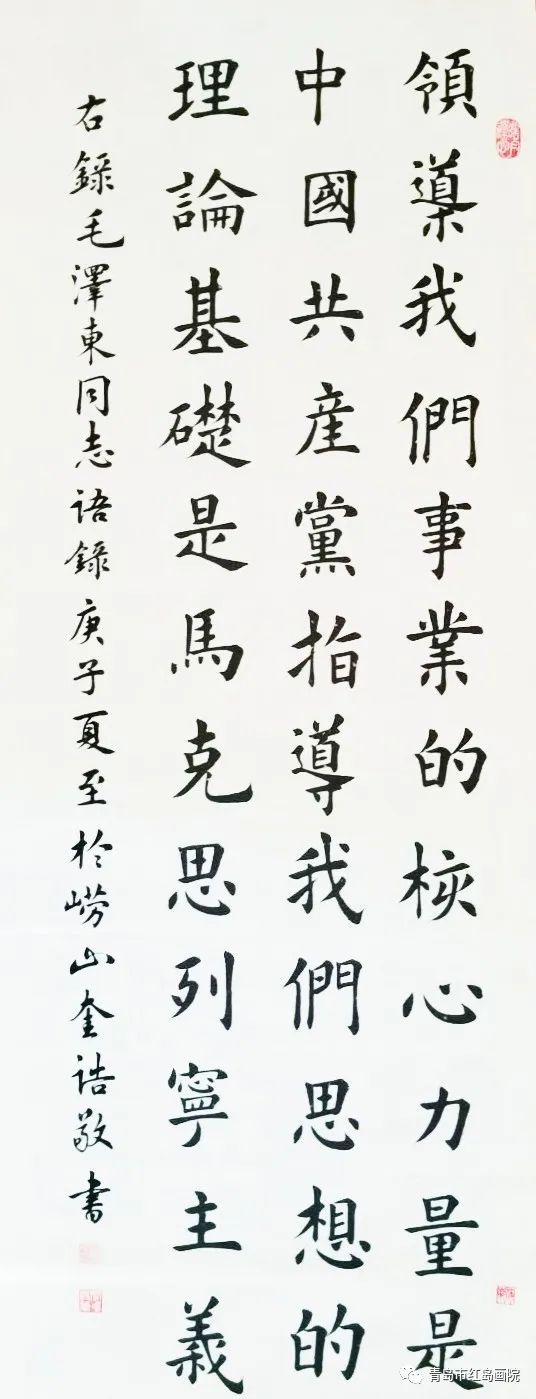 領導我們事業的核心力量是
中國共産黨指導我們思想的
理論基礎是馬克思列寧主義
右錄毛澤東同志語錄庚子夏至於崂山奎誥敬書
青岛市红岛画院